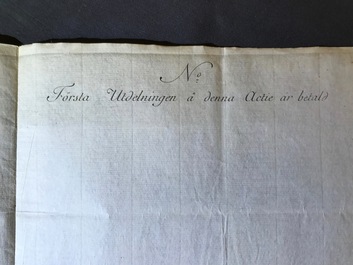 N.º
Första Utdelningen å denna Actie är betald